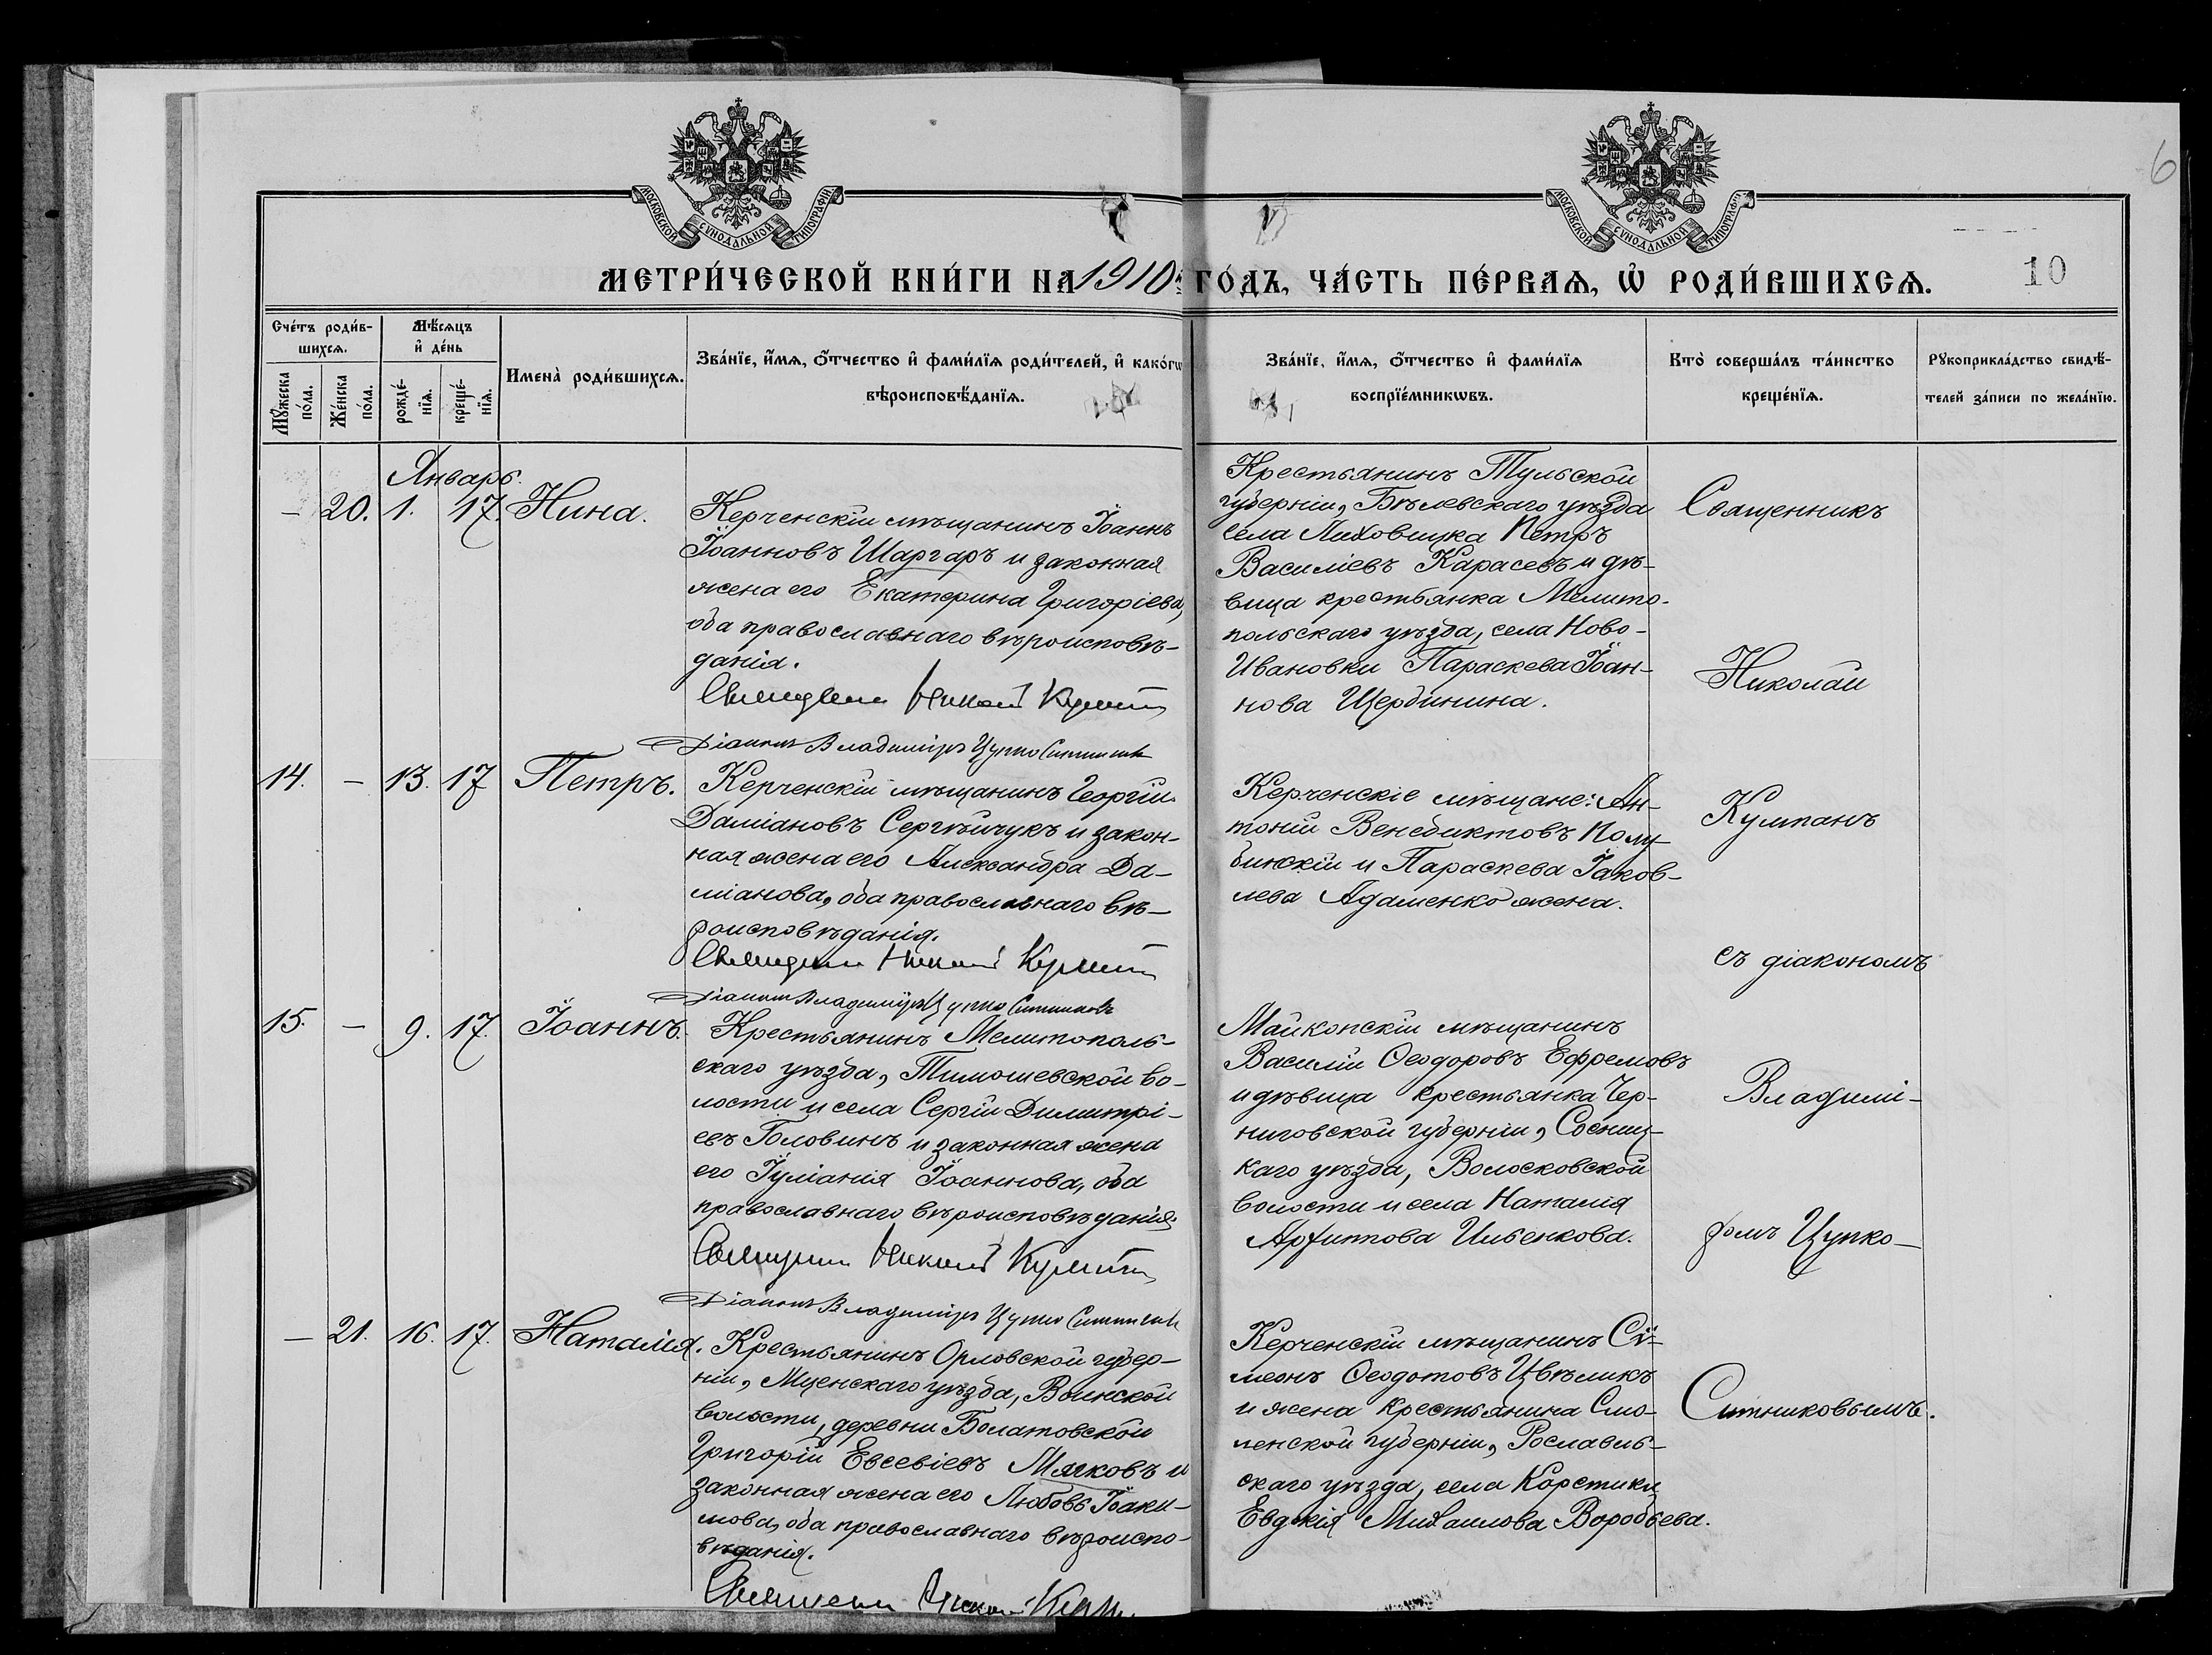 6
МОСКОВСКОЙ СѴНОДАЛЬНОЙ ТИПОГРАФІИ
МОСКОВСКОЙ СѴНОДАЛЬНОЙ ТИПОГРАФІИ
МЕТРИ́ЧЕСКОЙ КНИ́ГИ НА 1910 ГО́ДЪ, ЧА́СТЬ ПЕ́РВАѦ, Ѡ҆ РОДИ́ВШИХСѦ.
10
Сче́тъ роди́в-
шихсѧ.
Мꙋ́жеска
по́ла.
Же́нска
по́ла.
Мѣ́сѧцъ
и҆ де́нь
рожде́-
нїѧ.
креще́-
нїѧ.
Имена̀ роди́вшихсѧ.
Зва́нїе, и҆́мѧ, ѻ҆́тчество и҆ фами́лїѧ роди́телей, и҆ како́гѡ
вѣроисповѣ́данїѧ.
Зва́нїе, и҆́мѧ, ѻ҆́тчество и҆ фами́лїѧ
воспрїе́мникѡвъ.
Кто̀ соверша́лъ та́инство
креще́нїѧ.
Рꙋкоприкла́дство свидѣ́-
телей за́писи по жела́нїю.
Январь.
– 20. 1. 17. Нина.
Керченскій мѣщанинъ Іоаннъ
Іоанновъ Шаргаръ и законная
жена его Екатерина Григоріева,
оба православнаго вѣроисповѣ-
данія.
Священникъ Николай Кумпанъ
Діаконъ Владиміръ Цупко Ситниковъ
Крестьянинъ Тульской
губерніи, Бѣлевскаго уѣзда
села Петръ
Василіевъ Карасевъ и дѣ-
вица крестьянка Мелито-
польскаго уѣзда, села Ново-
Ивановки Параскева Іоан-
нова Щербинина.
14. – 13. 17 Петръ.
Керченскій мѣщанинъ Георгій
Даміановъ Сергѣйчукъ и закон-
ная жена его Александра Да-
міанова, оба православнаго вѣ-
роисповѣданія.
Священникъ Николай Кумпанъ
Діаконъ Владиміръ Цупко Ситниковъ
Керченскіе мѣщане: Ан-
тоній Венедиктовъ
и Параскева Іаков-
лева Адаменко жена.
15. – 9. 17. Іоаннъ.
Крестьянинъ Мелитополь-
скаго уѣзда, Тимошевской во-
лости и села Сергій Димитрі-
евъ Головинъ и законная жена
его Іуліанія Іоаннова, оба
православнаго вѣроисповѣданія.
Священникъ Николай Кумпанъ
Діаконъ Владиміръ Цупко Ситниковъ
Майкопскій мѣщанинъ
Василій Ѳеодоровъ Ефремовъ
и дѣвица крестьянка Чер-
ниговской губерніи, Сосниц-
каго уѣзда, Волосковской
волости и села Наталія
Ильенкова.
– 21. 16. 17. Наталія.
Крестьянинъ Орловской губер-
ніи, Мценскаго уѣзда, Воинской
волости, деревни
Григорій Евсевіевъ Мячковъ и
законная жена его Любовь Іоаки-
мова, оба православнаго вѣроиспо-
вѣданія.
Священникъ Николай
Керченскій мѣщанинъ Сѵ-
меонъ Ѳеодотовъ Цвѣликъ
и жена крестьянина Смо-
ленской губерніи, Рославль-
скаго уѣзда, села Корстики
Евдокія Михаилова Воробьева.
Священникъ
Николай
Кумпанъ
съ діакономъ
Владимі-
ромъ Цупко-
Ситниковымъ.